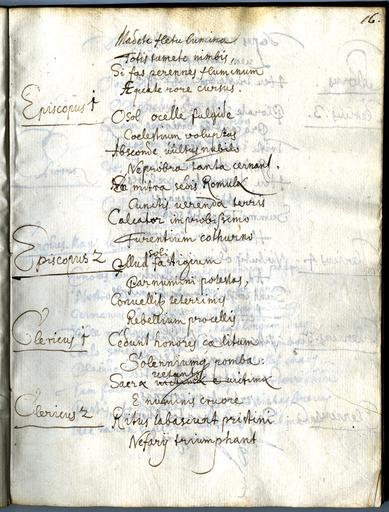 16.
Madete fletu lumina
Totis tumete nimbis
Si fas perennes fluminum
Æquate rore cursus.
Episcopus 1
O sol ocelle fulgide
Coelestium voluptas
Absconde vultus nubilo
Ne probra tanta cernant
mitra sedis Romulæ
Cunctis verenda terris
Calcator improbissimo
Furentium cothurno
Episcopus 2
Illud soli fastigium
Par numini potestas,
Convellit teterrimis
Rebellium procellis
Clericus 1
Cedunt honores coelitum
Solennium pompa:
Sacra rectantur e victima
E numinis cruore
Clericus 2
Ritus labascunt pristini
Nefary triumphant